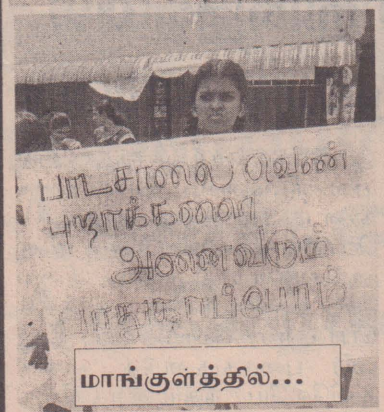 பாடசாலை வெண்
புறாக்களை
அனைவரும்
பாதுகாப்போம்
மாங்குளத்தில்...